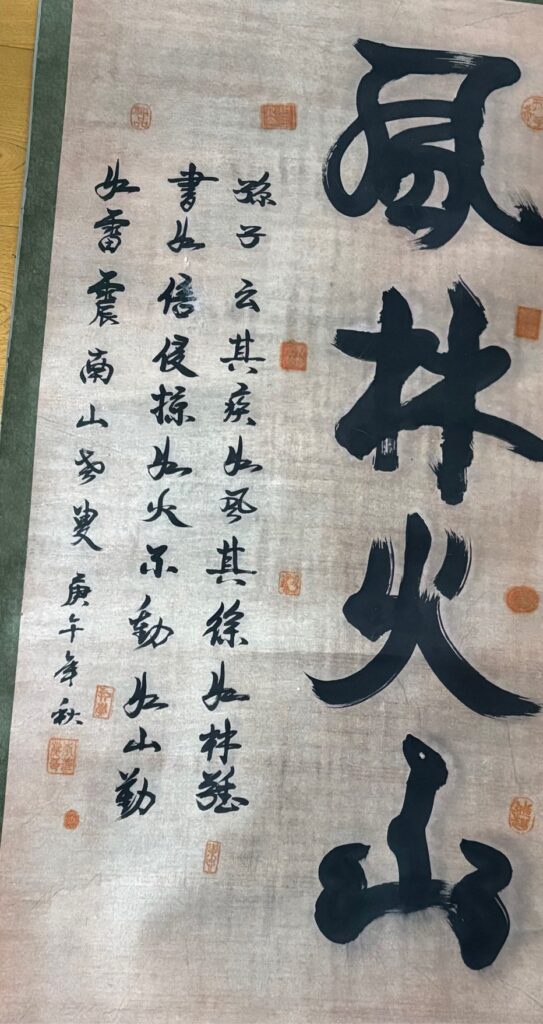 風林火山
孫子云其疾如風其徐如林
書如信侵掠如火不動如山勤
如雷震南山老叟
庚午年秋